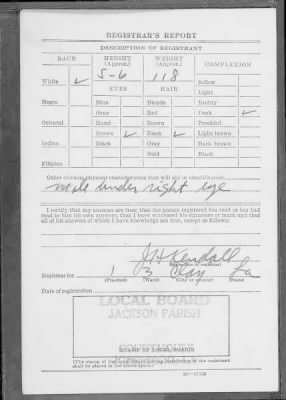 REGISTRAR'S REPORT
DESCRIPTION OF REGISTRANT
RACE HEIGHT (Approx.) WEIGHT (Approx.) COMPLEXION
5-6 118
White ✓ EYES HAIR Sallow
Light
Negro Blue Blonde Ruddy
Gray Red Dark ✓
Oriental Hazel Brown Freckled
Brown ✓ Black ✓ Light brown
Indian Black Gray Dark brown
Bald Black
Filipino
Other obvious physical characteristics that will aid in identification
mole under right eye
I certify that my answers are true; that the person registered has read or has had
read to him his own answers; that I have witnessed his signature or mark and that
all of his answers of which I have knowledge are true, except as follows:
J H Kendall
(Signature of registrar)
Registrar for 1 3 Clay La
(Precinct) (Ward) (City or county) (State)
Date of registration
LOCAL BOARD
JACKSON PARISH
COURTHOUSE
(STAMP OF LOCAL BOARD)
(The stamp of the local board having jurisdiction of the registrant
shall be placed in the above space.)